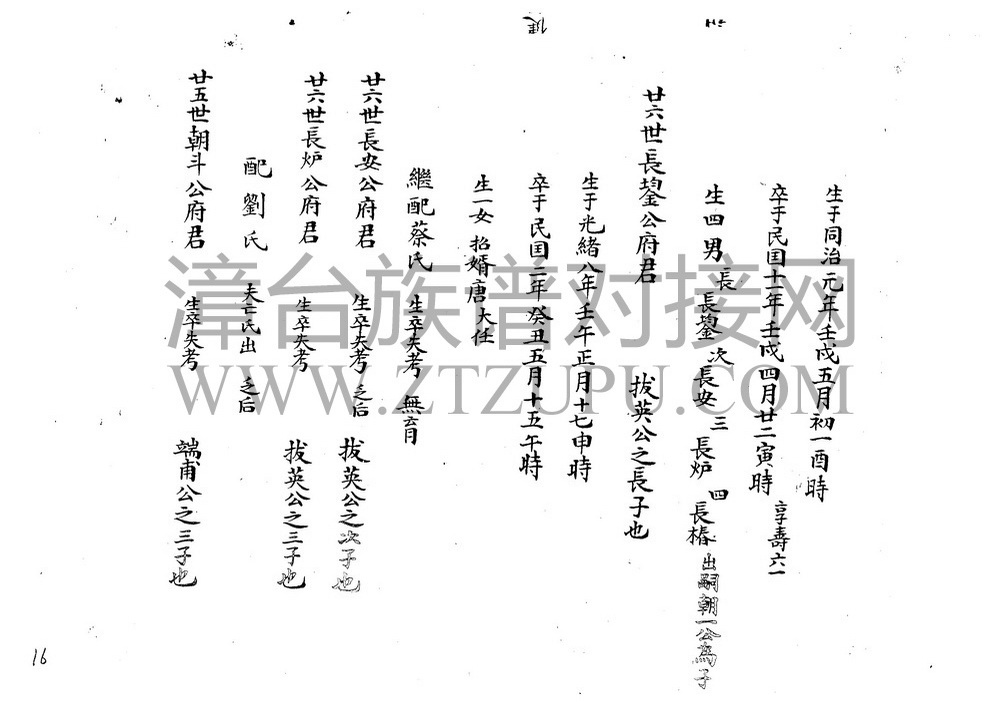 生于同治元年壬戌五月初一酉時
卒于民国十一年壬戌四月廿二寅時 享壽六一
生四男 長長鋆 次長安 三長炉 四長椿 出嗣朝一公為子
廿六世長鋆公府君 拔英公之長子也
生于光緒八年壬午正月十七申時
卒于民国二年癸丑五月十五午時
生一女 招婿唐大任
繼配蔡氏 生卒失考 無
廿六世長安公府君 生卒失考 之后 拔英公之次子也
廿六世長炉公府君 生卒失考 拔英公之三子也
配劉氏 夫亡氏出 之后
廿五世朝斗公府君 生卒失考 端甫公之三子也
漳台族谱对接网
WWW.ZTZUPU.COM
16